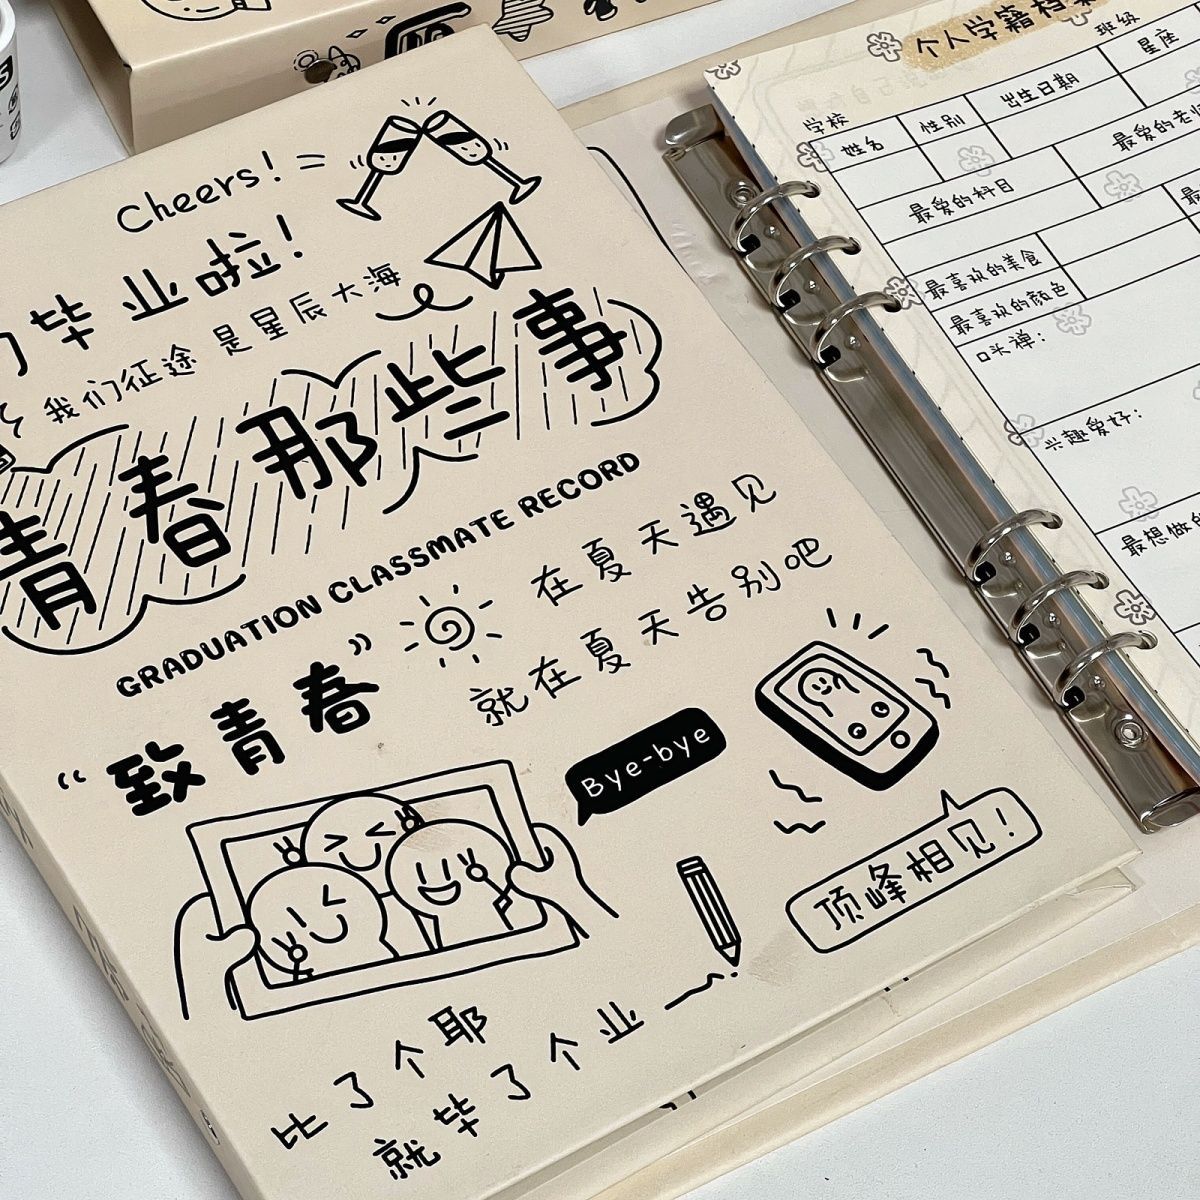 Cheers!
毕业啦!
我们征途 是星辰大海
青春那些事
GRADUATION CLASSMATE RECORD
"致青春"
在夏天遇见
就在夏天告别吧
Bye-bye
顶峰相见!
比了个耶
就毕了个业
个人学籍档
学校
班级
姓名
性别
出生日期
星座
最爱的科目
最爱的老师
最喜欢的美食
最喜欢的颜色
口头禅:
兴趣爱好:
最想做的